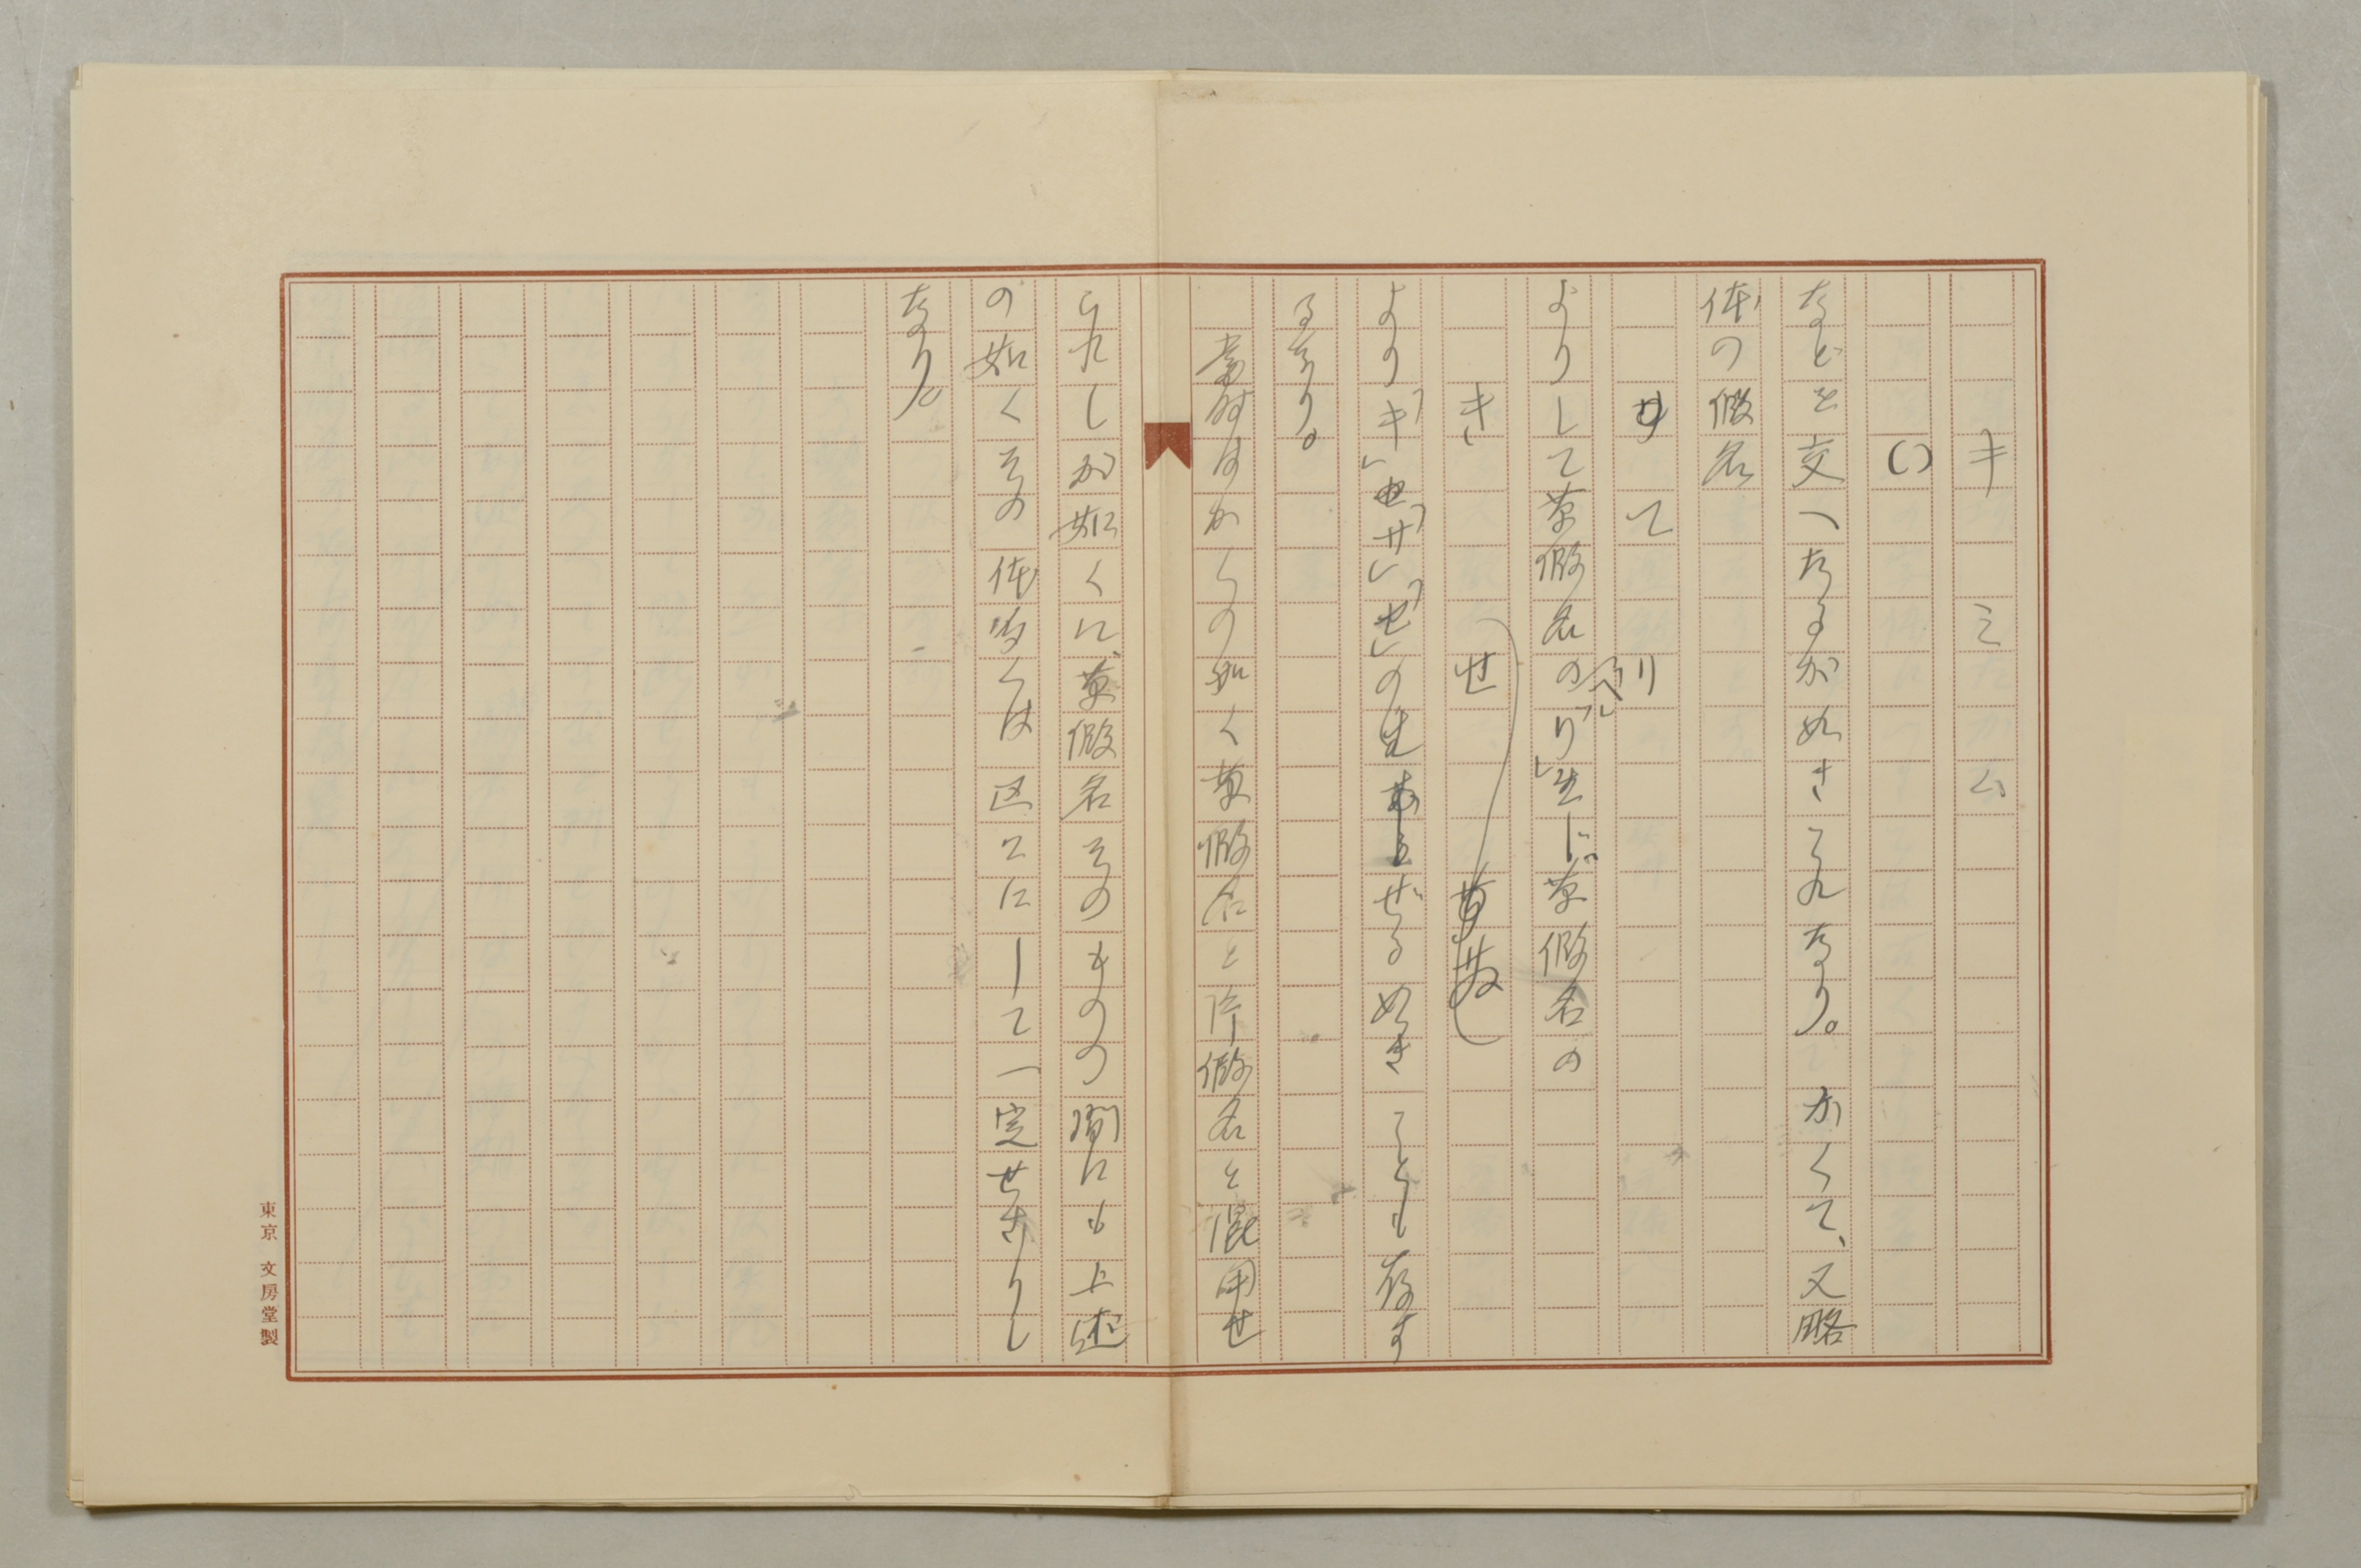 キ ミ ム
()
などを交へたるが如きこれなり。かくて、又略
体の假名
て リ
よりして草假名の「り」生じ、草假名の
き せ 草体
より「キ」「サ」「せ」の生
ぜる如きことも存す
るなり。
當時はかくの如く草假名と片假名と混用せ
られしが如くに、草假名そのものの間にも上述
の如くその体多くは区々にして一定せざりし
なり。
東京 文房堂製